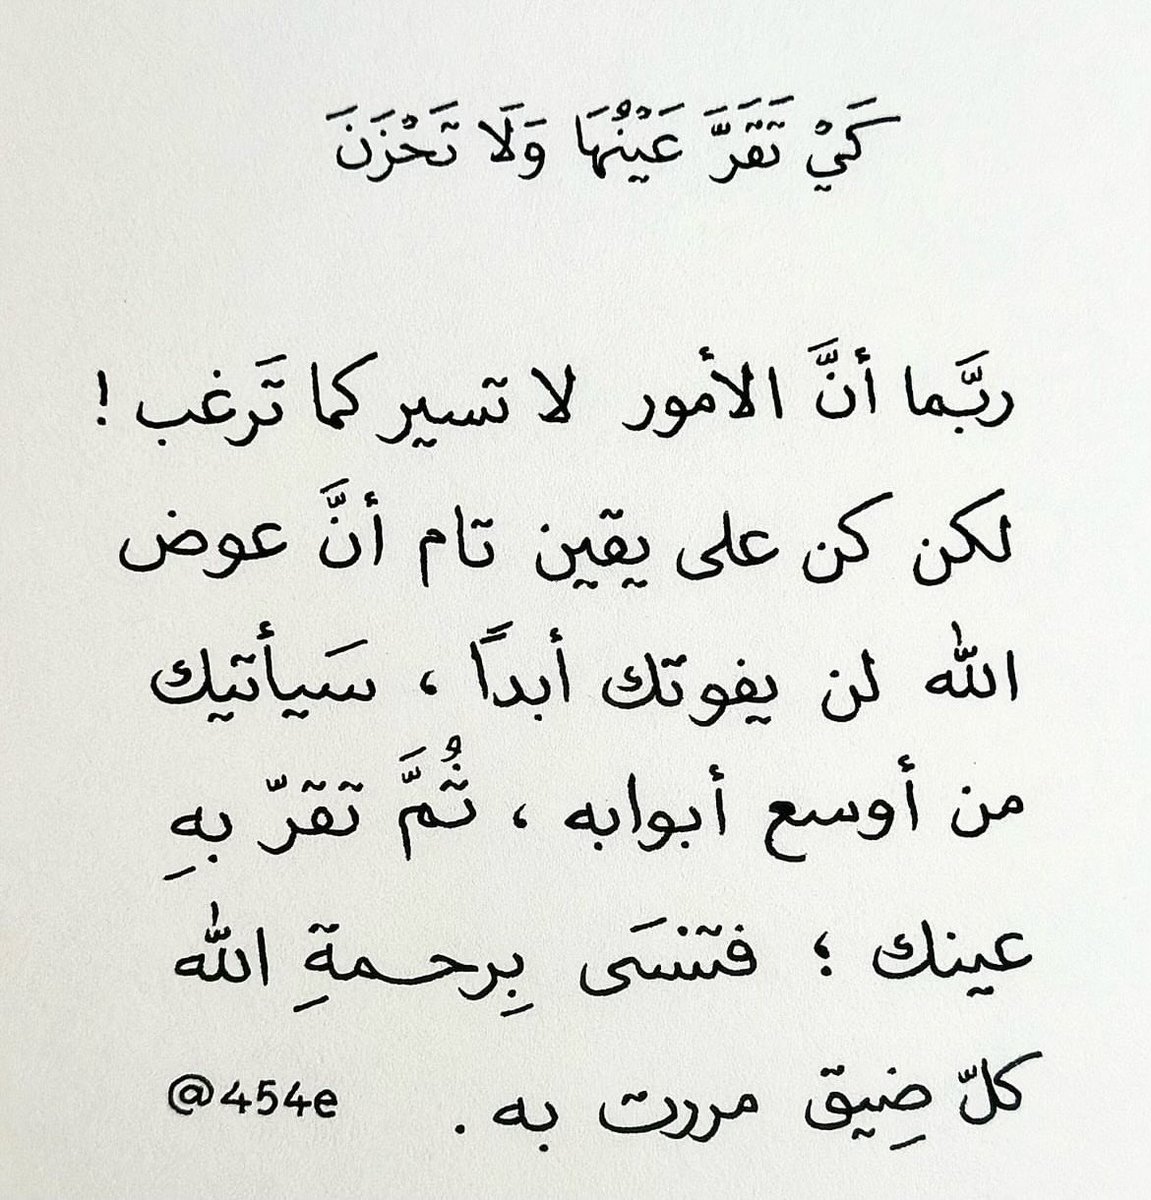 كَيْ تَقَرَّ عَيْنُهَا وَلَا تَحْزَنَ
ربَّما أنَّ الأمور لا تسير كما تَرغب !
لكن كن على يقين تام أنَّ عوض
الله لن يفوتك أبداً ، سَيأتيك
من أوسع أبوابه ، ثُمَّ تقرّ بهِ
عينك ؛ فتنسَى بِرحـمةِ الله
كلّ ضِيق مررت به . @454e